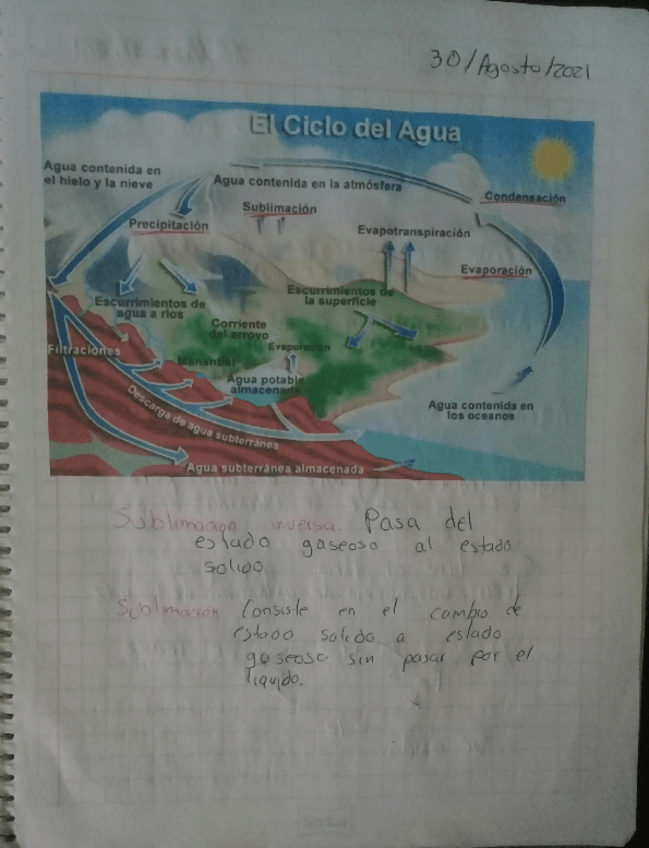 30/Agosto/2021
El Ciclo del Agua
Agua contenida en
el hielo y la nieve
Agua contenida en la atmósfera
Condensación
Sublimación
Precipitación
Evapotranspiración
Evaporación
Escurrimientos de
la superficie
Escurrimientos de
agua a ríos
Corriente
del arroyo
Evaporación
Filtraciones
Manantial
Agua potable
almacenada
Descarga de agua subterránea
Agua contenida en
los oceanos
Agua subterránea almacenada
Sublimacion inversa. Pasa del
estado gaseoso al estado
solido
Sublimacion Consiste en el cambio de
estado solido a estado
gaseoso sin pasar por el
liquido.
Scribe